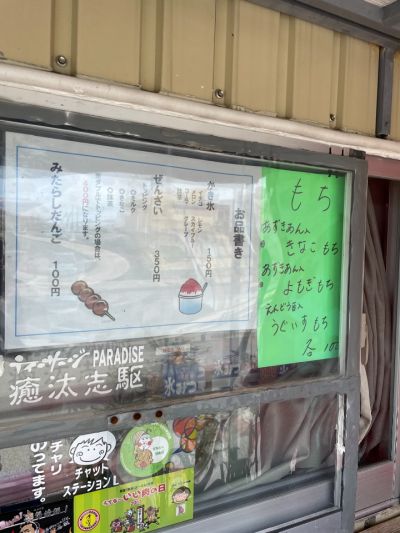 お品書き
かき氷 150円
イチゴ レモン
メロン スカイブルー
コーラ グレープ
抹茶
ぜんざい 350円
トッピング
○ミルク
○きなこ
○抹茶
みたらしだんご 100円
もち
あずきあん入
きなこもち
あずきあん入
よもぎもち
えんどう豆入
うぐいすもち
各
PARADISE
癒汰志駆
チャット
ステーションL
チャリ
のってます。
いい肉の日